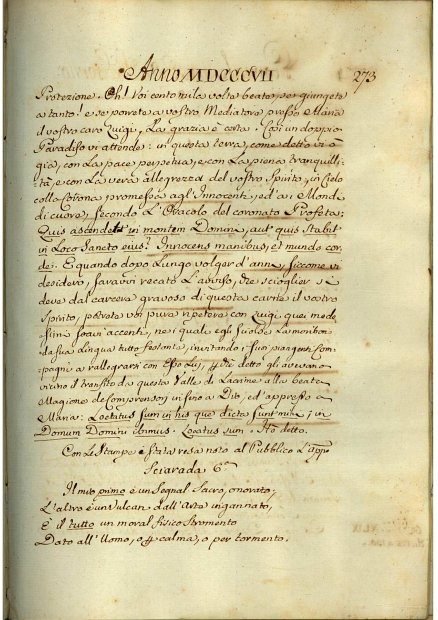 Anno MDCCCVII
273
Protezione. Oh! Voi cento mila volte beate, se giungete
a tanto! e se ponete a vostro Mediatore presso Maria
il vostro caro Luigi, La grazia è certa. Così un doppio
Paradiso vi attende: in questa terra, come detto vi ò
già, con La pace perpetua, e con La piena tranquilli-
tà, e con La vera allegrezza del vostro Spirito, in Cielo
colla promessa agl'Innocenti, ed a' Mondi
di cuore, secondo L'Oracolo del coronato Profeta:
Quis ascendet in montem Domini, aut quis stabit
in Loco Sancto eius? Innocens manibus, et mundo cor-
de. E quando dopo Lungo volger d'anni, siccome vi
desidero, saravvi recato L'avviso, che scioglier si
deve dal carcere gravoso di questa carne il vostro
Spirito, potrete voi pure ripetere con Luigi quei mede-
simi soavi accenti, nei quali egli sciolse La moribon-
da sua Lingua tutto festante, invitando i suoi piangenti Com-
pagni a rallegrarsi con Esso Lui, detto gli avevano
vicino il transito da questa Valle di Lacrime alla beata
Magione de' Comprensori in seno a Dio, ed appresso a
Maria: Laetatus sum in his quae dicta sunt mihi, in
Domum Domini ibimus. Laetatus sum. Ho detto.
Con Le Stampe è stata resa noto al Pubblico L'appo
Sciarada 6.ª
Il mio primo è un Segnal Sacro, onorato,
L'altro è un Vulcan dall'Arte ingannato,
È il tutto un moral fisico Stromento
Dato all'Uomo, o per calma, o per tormento.